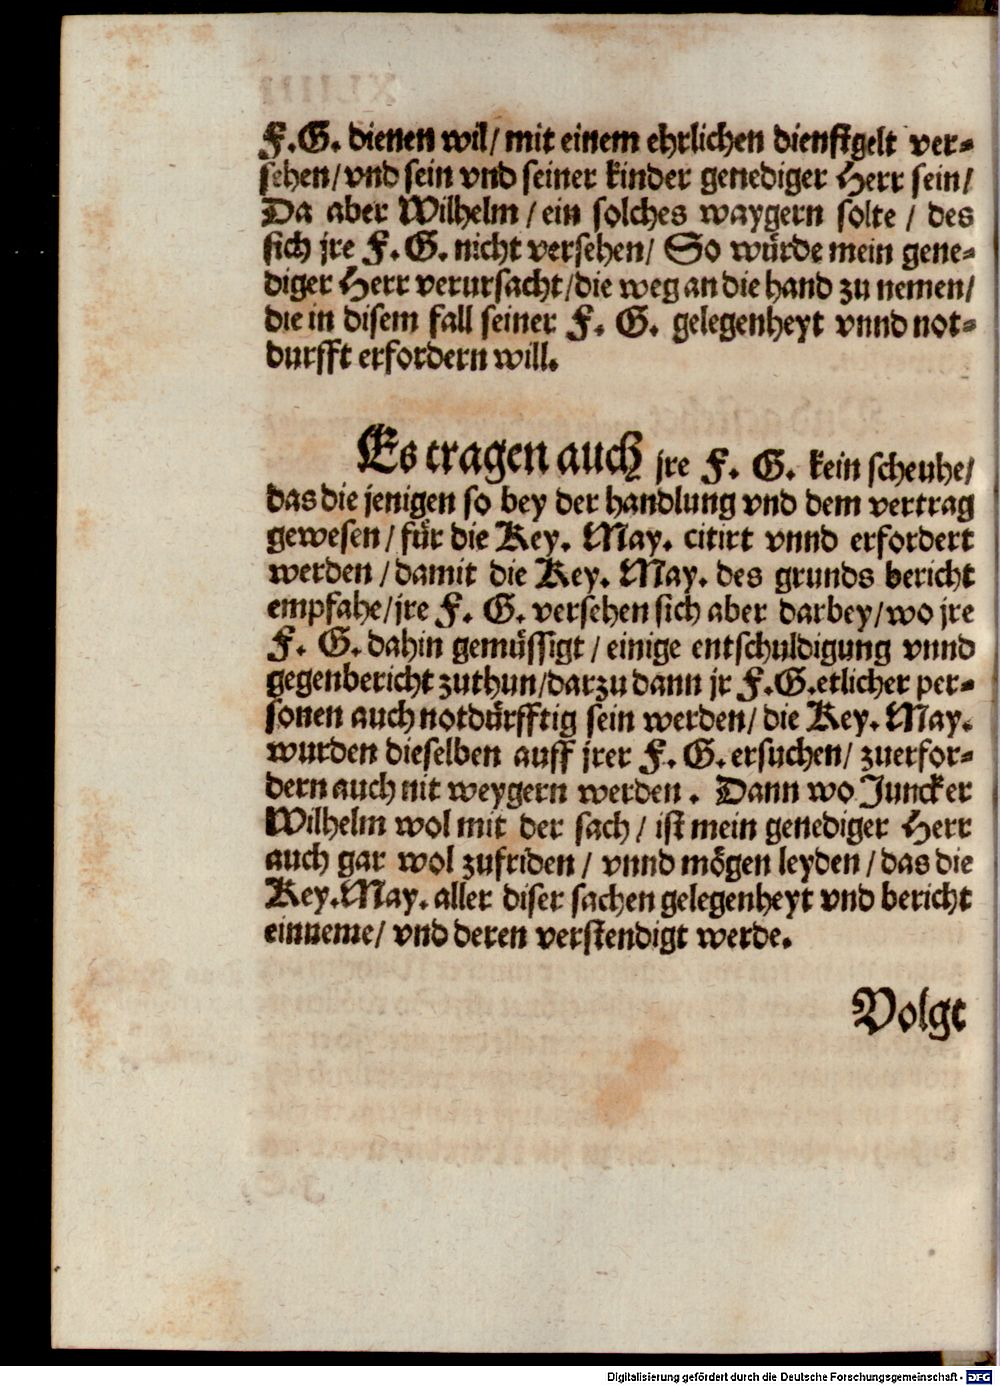 F.G. dienen wil/ mit einem ehrlichen dienstgelt ver-
sehen/ vnd sein vnd seiner kinder genediger Herr sein/
Da aber Wilhelm / ein solches waygern solte / des
sich jre F.G. nicht versehen/ So würde mein gene-
diger Herr verursacht/die weg an die hand zu nemen/
die in disem fall seiner F. G. gelegenheyt vnnd not-
durfft erfordern will.
Es tragen auch jre F. G. kein scheuhe/
das die jenigen so bey der handlung vnd dem vertrag
gewesen / für die Key. May. citirt vnnd erfordert
werden / damit die Key. May. des grunds bericht
empfahe/jre F. G. versehen sich aber darbey/wo jre
F. G. dahin gemüssigt / einige entschuldigung vnnd
gegenbericht zuthun/darzu dann jr F.G.etlicher per-
sonen auch notdürfftig sein werden/ die Key. May.
wurden dieselben auff jrer F. G. ersuchen/ zuerfor-
dern auch nit weygern werden . Dann wo Juncker
Wilhelm wol mit der sach / ist mein genediger Herr
auch gar wol zufriden / vnnd mögen leyden / das die
Key.May. aller diser sachen gelegenheyt vnd bericht
einneme/ vnd deren verstendigt werde.
Volgt
Digitalisierung gefördert durch die Deutsche Forschungsgemeinschaft - DFG